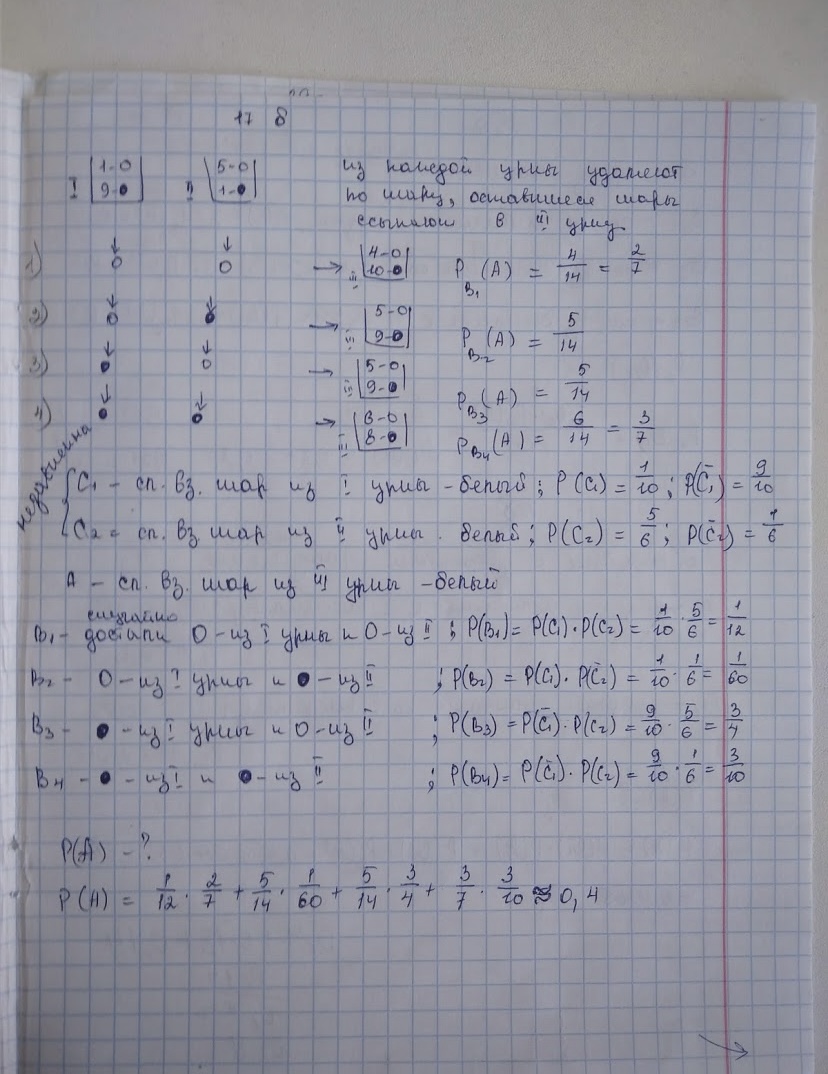 17 8
I 1-O 9-● II 5-O 1-●
из каждой урны удаляют
по шару, оставшиеся шары
ссыпают в III урну.
1) O O → III 4-O 10-● P_B₁(A) = 4/14 = 2/7
2) O ● → III 5-O 9-● P_B₂(A) = 5/14
3) ● O → III 5-O 9-● P_B₃(A) = 5/14
4) ● ● → III 6-O 8-● P_B₄(A) = 6/14 = 3/7
независимы
C₁ - сл. вз. шар из I урны - белый; P(C₁) = 1/10; P(C̄₁) = 9/10
C₂ = сл. вз. шар из II урны - белый; P(C₂) = 5/6; P(C̄₂) = 1/6
A - сл. вз. шар из III урны - белый
случайно
B₁ - достали O-из I урны и O-из II; P(B₁) = P(C₁)·P(C₂) = 1/10 · 5/6 = 1/12
B₂ - O-из I урны и ●-из II; P(B₂) = P(C₁)·P(C̄₂) = 1/10 · 1/6 = 1/60
B₃ - ●-из I урны и O-из II; P(B₃) = P(C̄₁)·P(C₂) = 9/10 · 5/6 = 3/4
B₄ - ●-из I и ●-из II; P(B₄) = P(C̄₁)·P(C₂) = 9/10 · 1/6 = 3/10
P(A) - ?
P(A) = 1/12 · 2/7 + 5/14 · 1/60 + 5/14 · 3/4 + 3/7 · 3/10 ≈ 0,4